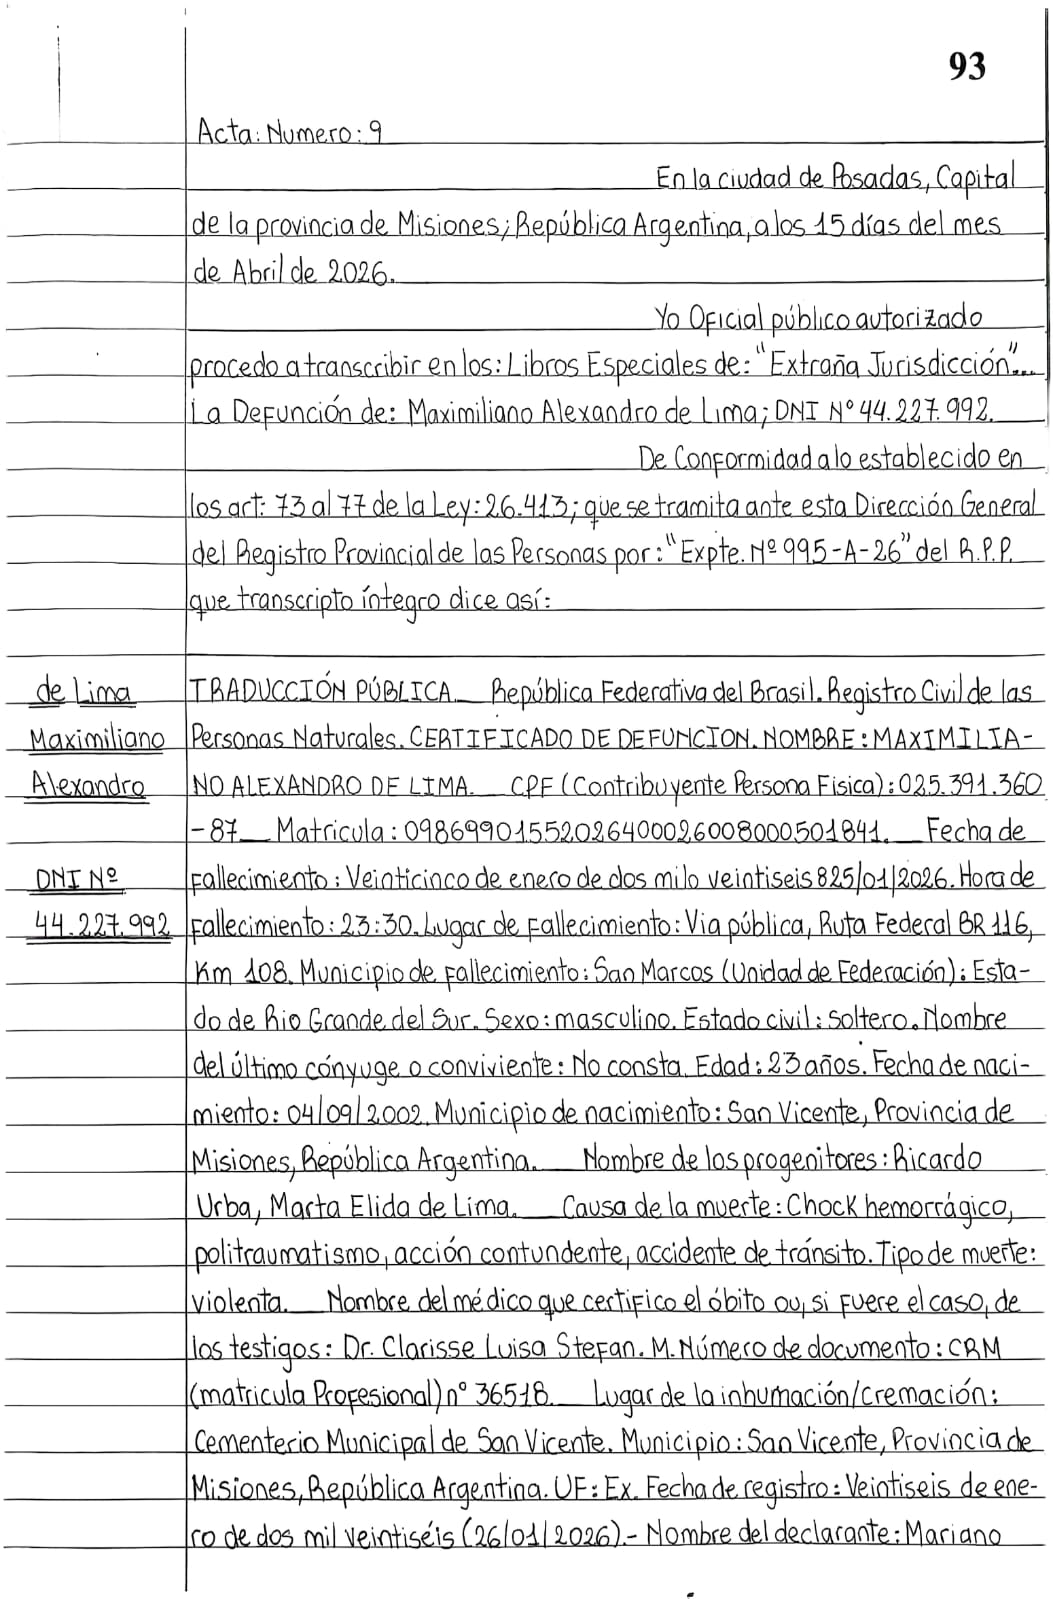 93
Acta: Numero: 9
En la ciudad de Posadas, Capital
de la provincia de Misiones; República Argentina, a los 15 días del mes
de Abril de 2026.
Yo Oficial público autorizado
procedo a transcribir en los: Libros Especiales de: "Extraña Jurisdicción"...
La Defunción de: Maximiliano Alexandro de Lima; DNI Nº 44.227.992.
De Conformidad a lo establecido en
los art: 73 al 77 de la Ley: 26.413; que se tramita ante esta Dirección General
del Registro Provincial de las Personas por: "Expte. Nº 995-A-26" del R.P.P.
que transcripto íntegro dice así:
de Lima
Maximiliano
Alexandro
DNI Nº
44.227.992
TRADUCCIÓN PÚBLICA. República Federativa del Brasil. Registro Civil de las
Personas Naturales. CERTIFICADO DE DEFUNCION. NOMBRE: MAXIMILIA-
NO ALEXANDRO DE LIMA. CPF (Contribuyente Persona Fisica): 025.391.360
-87 Matricula: 09869901552026400026008000501841. Fecha de
fallecimiento: Veinticinco de enero de dos milo veintiseis 825/01/2026. Hora de
fallecimiento: 23:30. Lugar de fallecimiento: Via pública, Ruta Federal BR 116,
Km 108. Municipio de fallecimiento: San Marcos (Unidad de Federación): Esta-
do de Rio Grande del Sur. Sexo: masculino. Estado civil: soltero. Nombre
del último cónyuge o conviviente: No consta. Edad: 23 años. Fecha de naci-
miento: 04/09/2002. Municipio de nacimiento: San Vicente, Provincia de
Misiones, República Argentina. Nombre de los progenitores: Ricardo
Urba, Marta Elida de Lima. Causa de la muerte: Chock hemorrágico,
politraumatismo, acción contundente, accidente de tránsito. Tipo de muerte:
violenta. Nombre del médico que certifico el óbito ou, si fuere el caso, de
los testigos: Dr. Clarisse Luisa Stefan. M. Número de documento: CRM
(matricula Profesional) nº 36518. Lugar de la inhumación/cremación:
Cementerio Municipal de San Vicente. Municipio: San Vicente, Provincia de
Misiones, República Argentina. UF: Ex. Fecha de registro: Veintiseis de ene-
ro de dos mil veintiséis (26/01/2026).- Nombre del declarante: Mariano